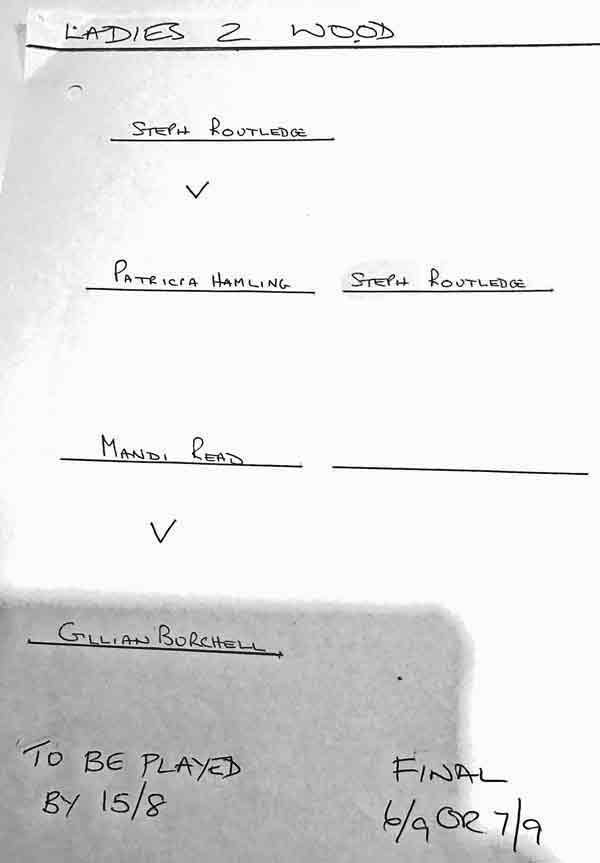 LADIES 2 WOOD
STEPH ROUTLEDGE
V
PATRICIA HAMLING STEPH ROUTLEDGE
MANDI READ
V
GILLIAN BURCHELL
TO BE PLAYED FINAL
BY 15/8 6/9 OR 7/9